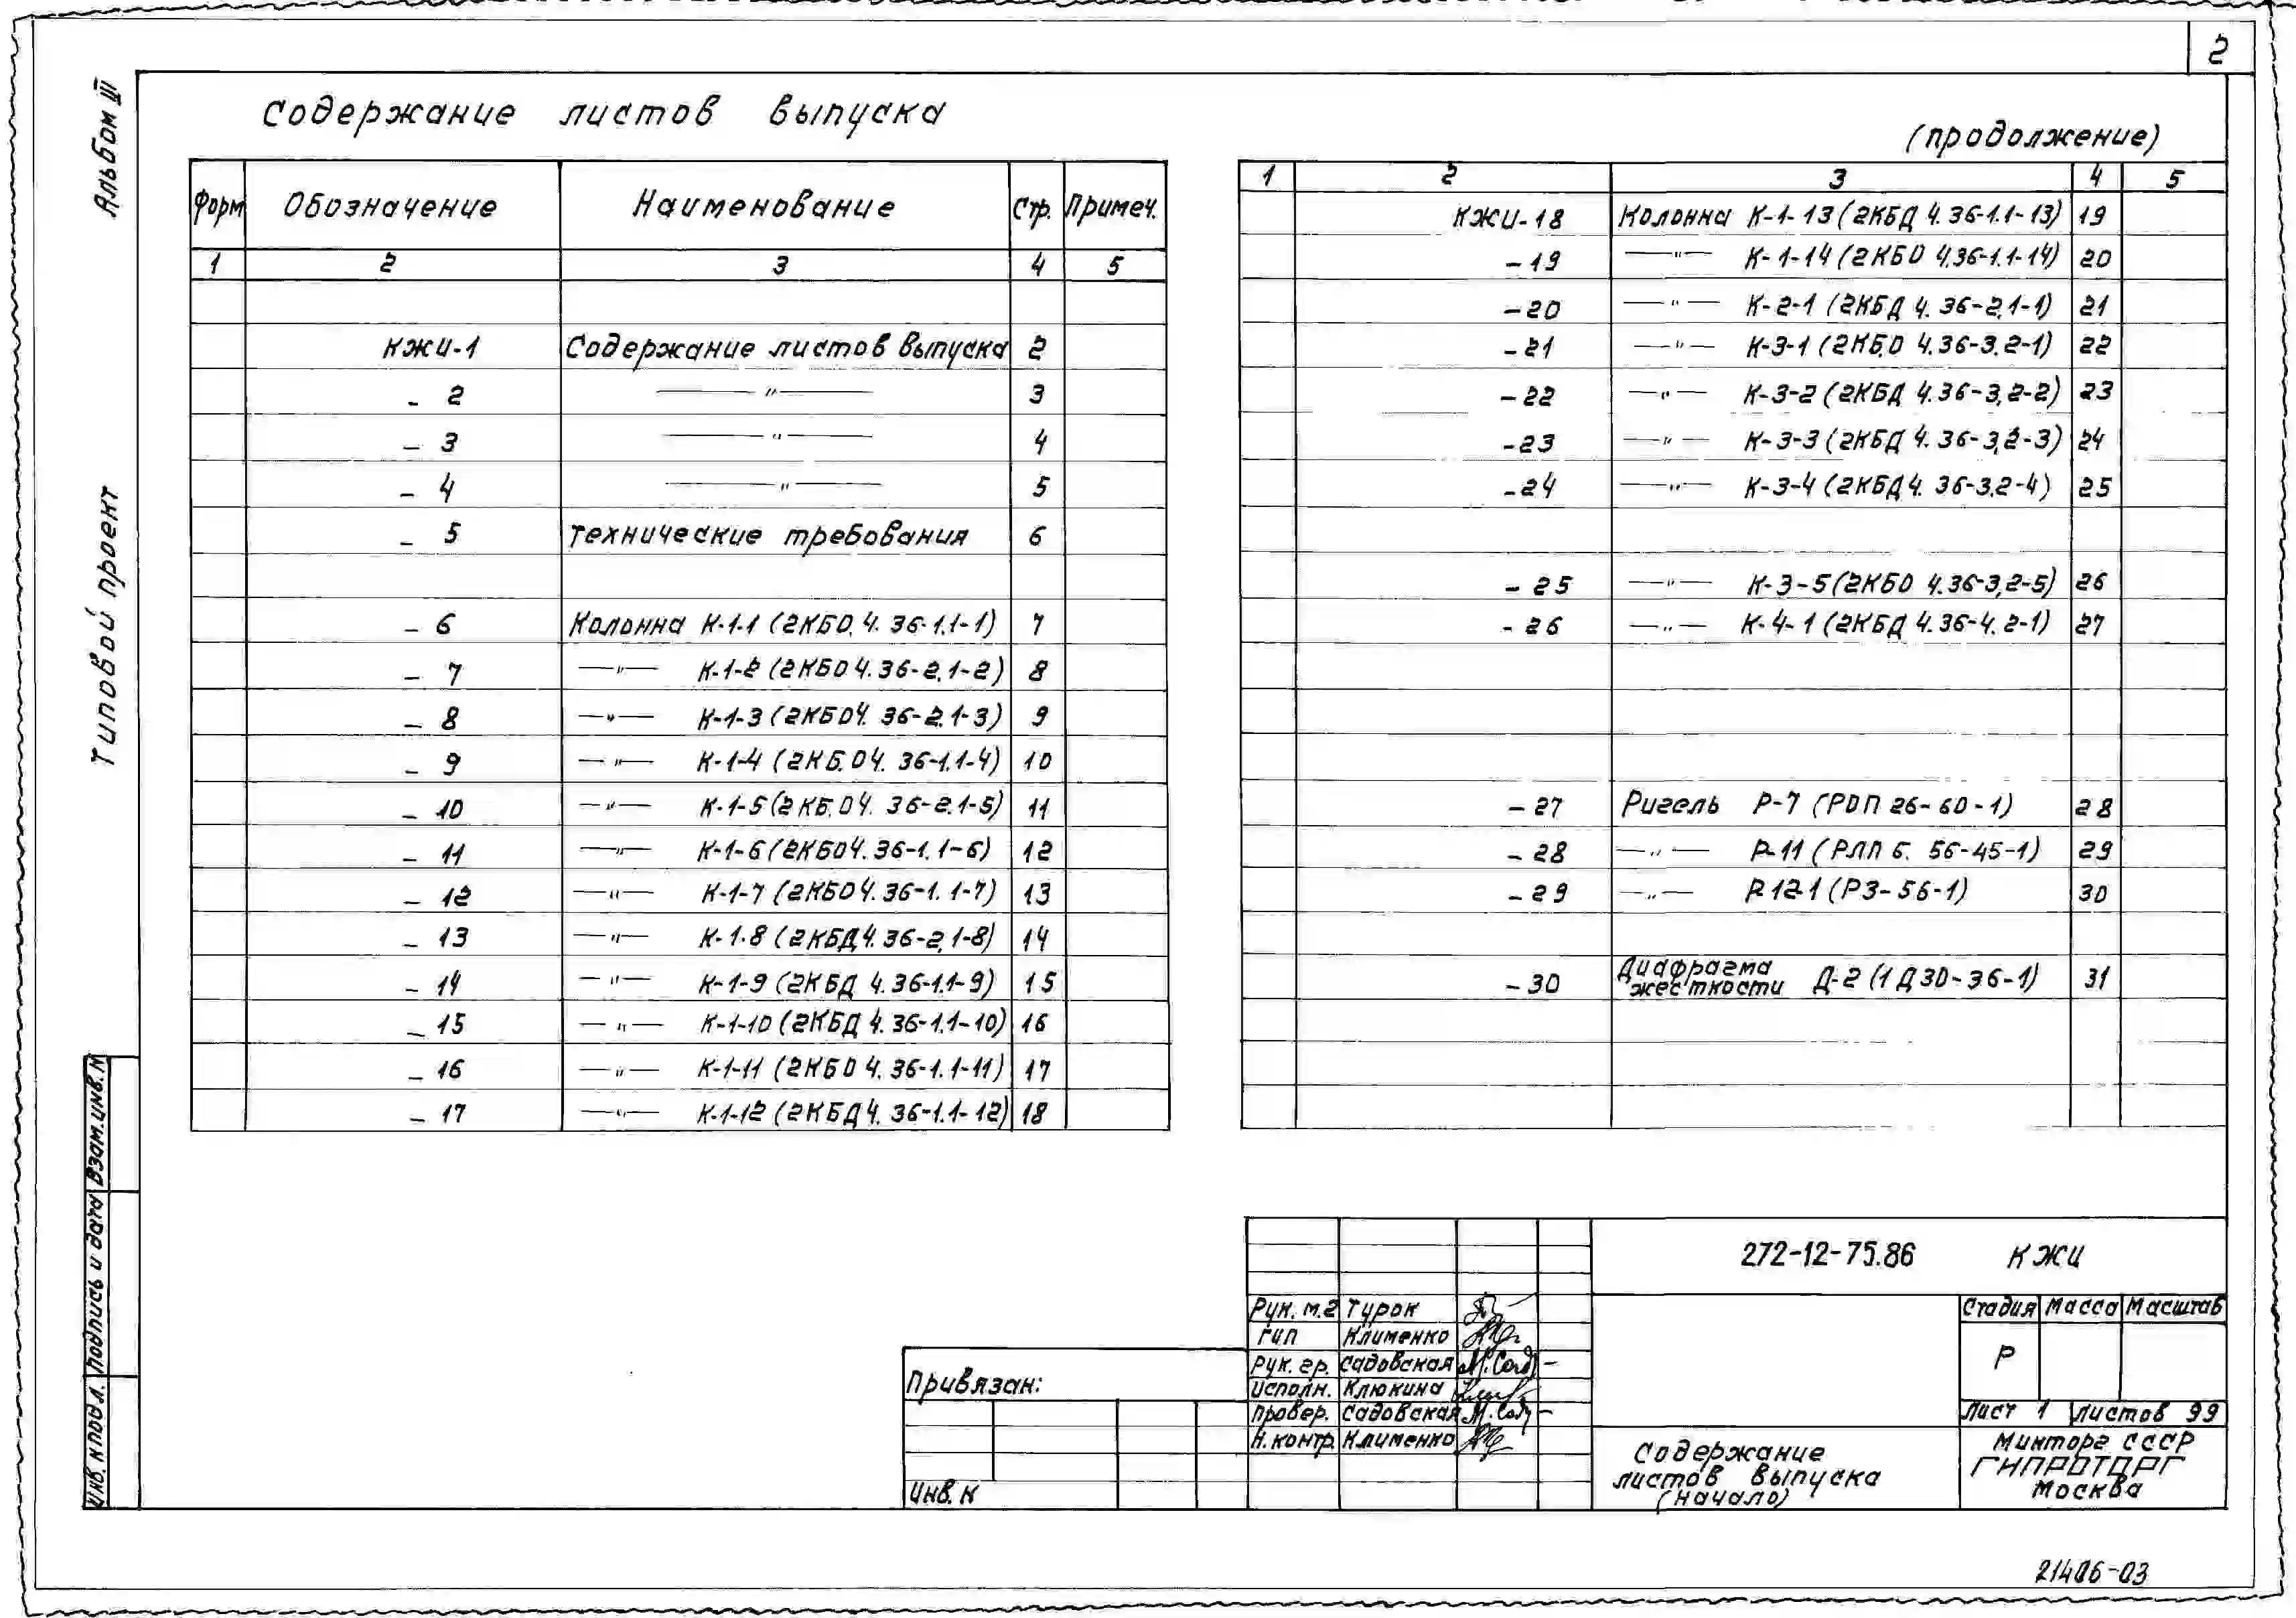 2
Альбом III
Типовой проект
Содержание листов выпуска
(продолжение)
Форм Обозначение Наименование Стр. Примеч.
1 2 3 4 5
КЖИ-1 Содержание листов выпуска 2
- 2 —"— 3
- 3 —"— 4
- 4 —"— 5
- 5 Технические требования 6
- 6 Колонна К-1-1 (2КБО.4.36-1.1-1) 7
- 7 —"— К-1-2 (2КБО 4.36-2.1-2) 8
- 8 —"— К-1-3 (2КБО4.36-2.1-3) 9
- 9 —"— К-1-4 (2КБ.О4.36-1.1-4) 10
- 10 —"— К-1-5 (2КБ.О4.36-2.1-5) 11
- 11 —"— К-1-6 (2КБО4.36-1.1-6) 12
- 12 —"— К-1-7 (2КБО4.36-1.1-7) 13
- 13 —"— К-1-8 (2КБД4.36-2,1-8) 14
- 14 —"— К-1-9 (2КБД 4.36-1.1-9) 15
- 15 —"— К-1-10 (2КБД 4.36-1.1-10) 16
- 16 —"— К-1-11 (2КБО 4.36-1.1-11) 17
- 17 —"— К-1-12 (2КБД4.36-1.1-12) 18
1 2 3 4 5
КЖИ-18 Колонна К-1-13 (2КБД 4.36-1.1-13) 19
-19 —"— К-1-14 (2КБО 4.36-1.1-14) 20
-20 —"— К-2-1 (2КБД 4.36-2.1-1) 21
-21 —"— К-3-1 (2КБ.О 4.36-3.2-1) 22
-22 —"— К-3-2 (2КБД 4.36-3,2-2) 23
-23 —"— К-3-3 (2КБД 4.36-3,2-3) 24
-24 —"— К-3-4 (2КБД4.36-3.2-4) 25
-25 —"— К-3-5 (2КБО 4.36-3,2-5) 26
-26 —"— К-4-1 (2КБД 4.36-4.2-1) 27
-27 Ригель Р-7 (РОП 26-60-1) 28
-28 —"— Р-11 (РЛП 6.56-45-1) 29
-29 —"— Р-12-1 (РЗ-56-1) 30
-30 Диафрагма жесткости Д-2 (1Д30-36-1) 31
Взам.инв.N
Подпись и дата
Инв. N подл.
Привязан:
Инв. N
272-12-75.86 КЖИ
Рук. м.2 Турок
ГИП Клименко
Рук. гр. Садовская
Исполн. Клюкина
Провер. Садовская
Н.контр. Клименко
Стадия Масса Масштаб
Р
Лист 1 Листов 99
Содержание
листов выпуска
(начало)
Минторг СССР
ГИПРОТОРГ
Москва
21406-03